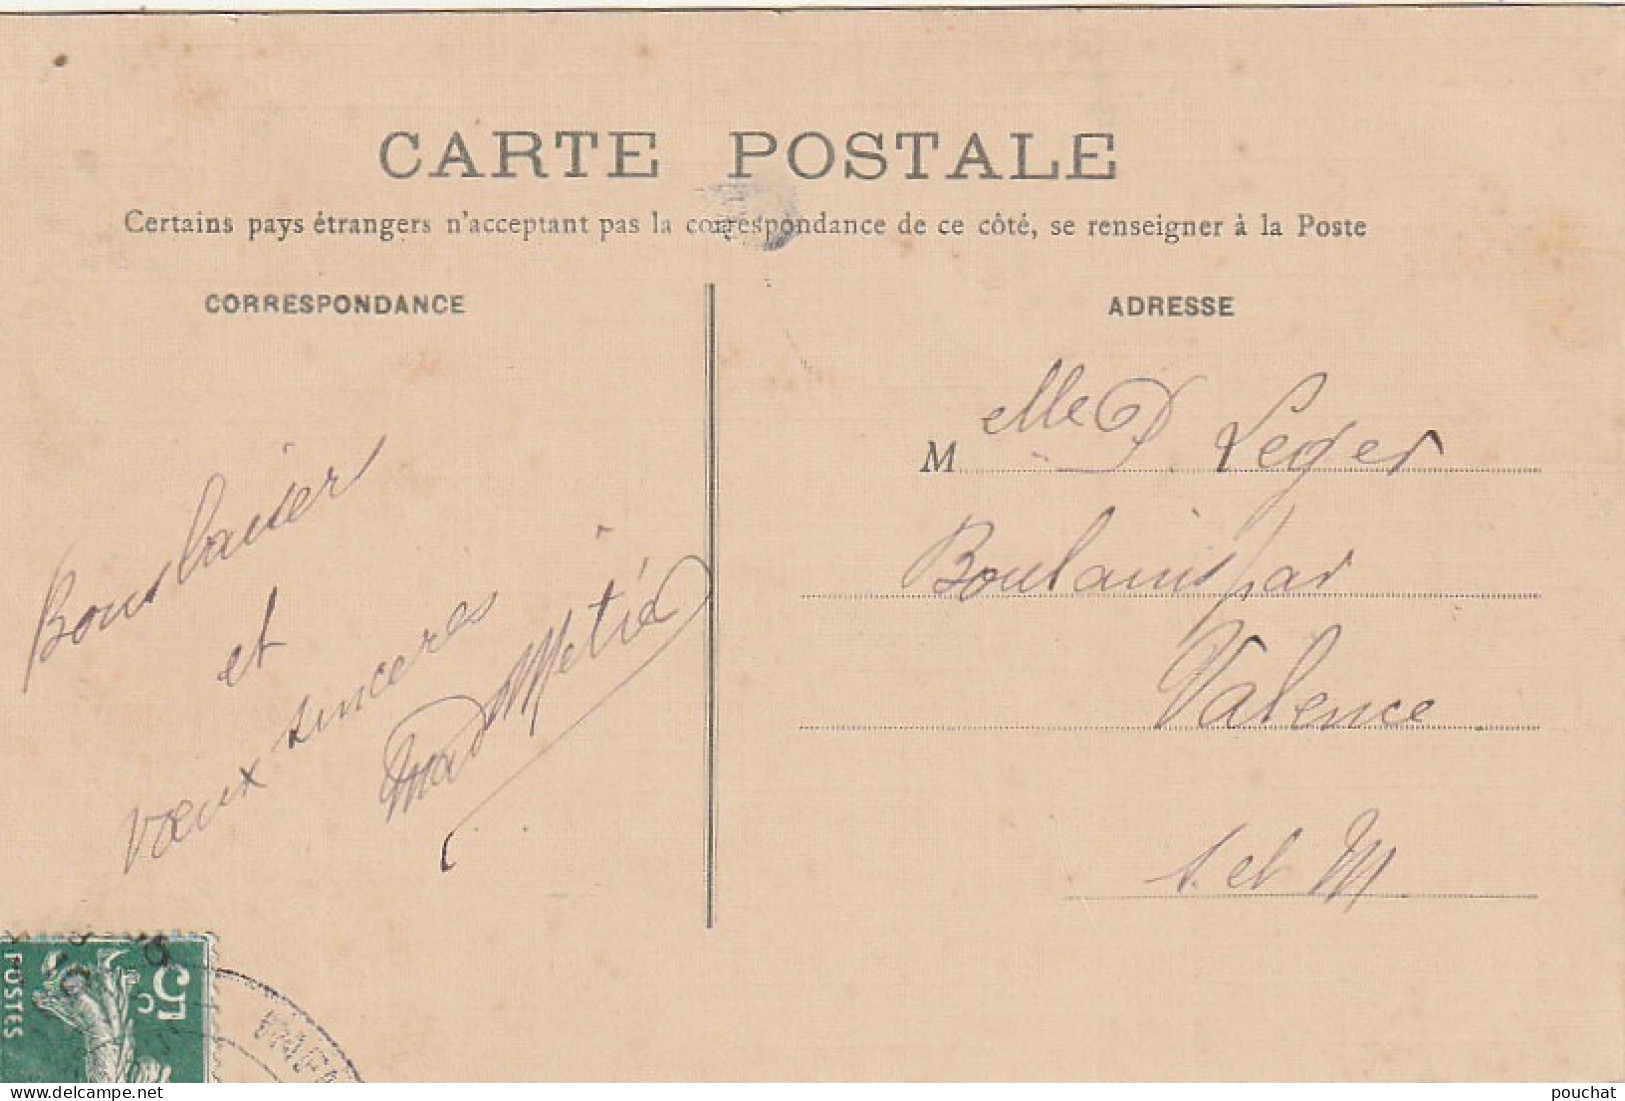 CARTE POSTALE
Certains pays étrangers n'acceptant pas la correspondance de ce côté, se renseigner à la Poste
CORRESPONDANCE
Bons baiser
et
vœux sinceres
ADRESSE
M elle D. Leger
Boulains par
Valence
S. et M
5c
POSTES
pouchat